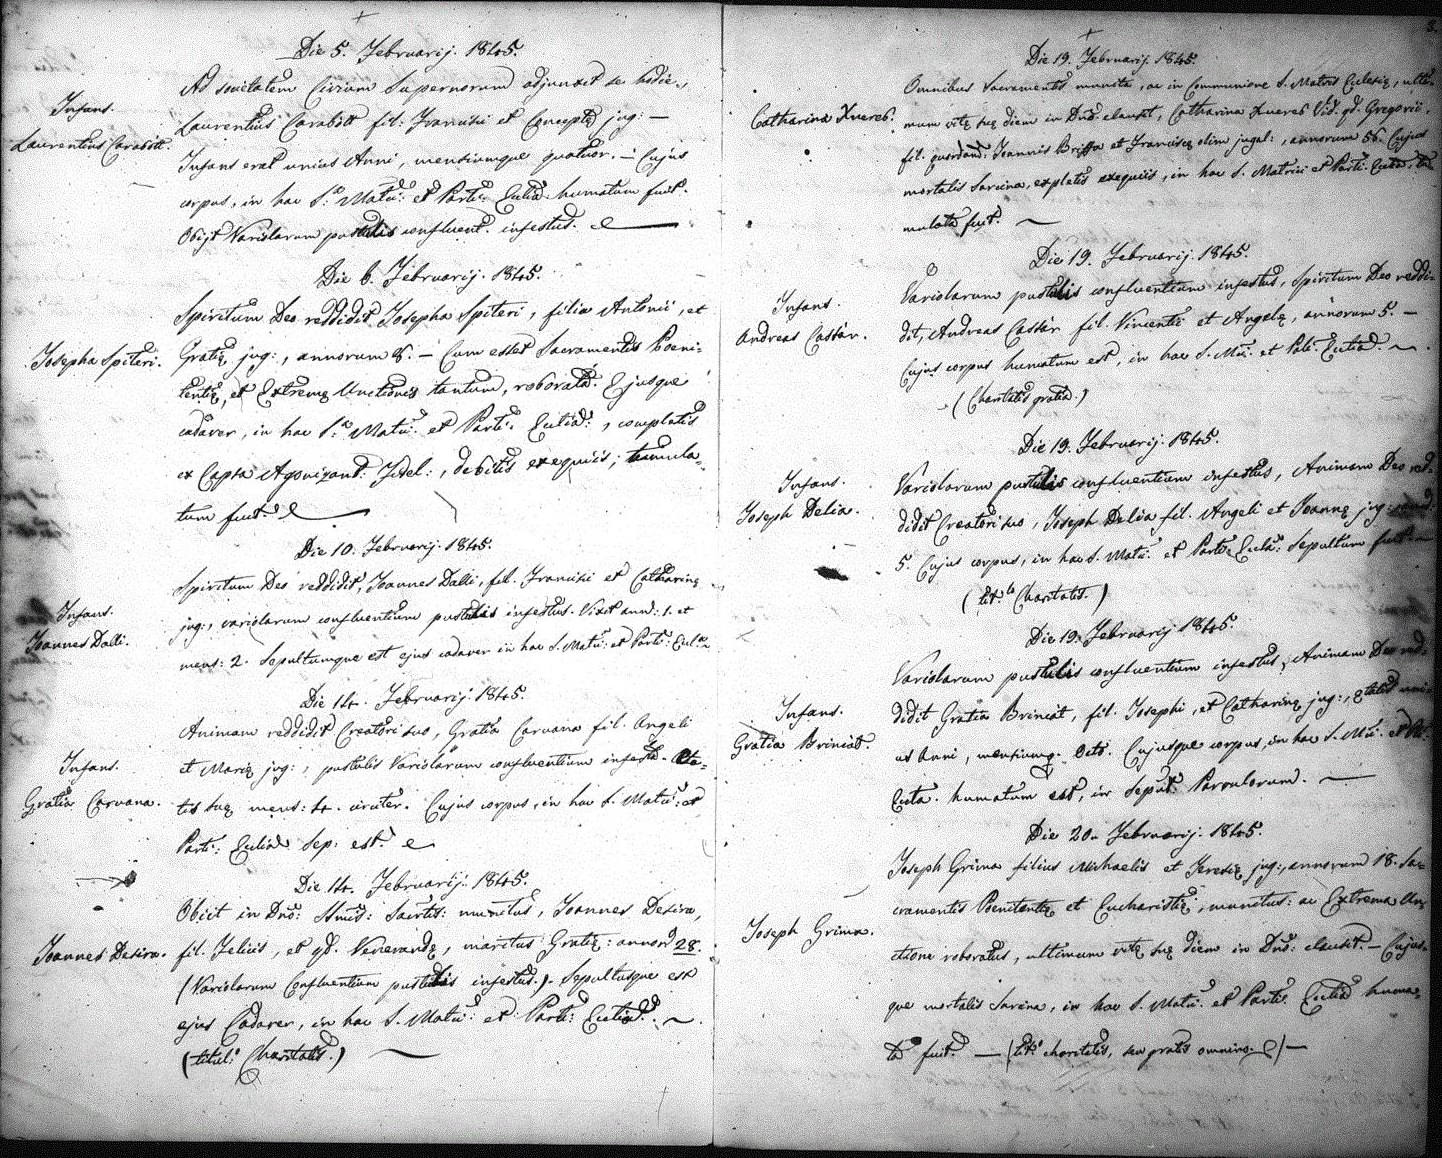 Die 5. Februarij. 1845.
Infans.
Laurentius Carabott.
Ad societatem Civium Supernorum adjunxit se hodie,
Laurentius Carabott fil: Francisci et Conceptę jug: —
Infans erat unius Anni, mensiumque quatuor. — Cujus
corpus, in hac S. Matri: et Parti: Ecclia humatum fuit.
Obijt Variolarum pustulis confluent. infestus.
Die 6. Februarij. 1845.
Josepha Spiteri.
Spiritum Deo reddidit Josepha Spiteri, filia Antonii, et
Gratię jug:, annorum 8. — Cum esset Sacramentis Poeni-
tentię, et Extremę Unctionis tantum, roborata. Ejusque
cadaver, in hac S. Matri: et Parti: Ecclia:, completis
ex Cappa Agonizant: Fidel:, debitis exequiis; tumula-
tum fuit.
Die 10. Februarij. 1845.
Infans.
Joannes Dalli.
Spiritum Deo reddidit, Joannes Dalli, fil. Francisci et Catharinę
jug:, variolarum confluentium pustulis infestus. Vixit ann: 1. et
mens: 2. Sepultumque est ejus cadaver in hac S. Matri: et Parti: Eccl:a
Die 14. Februarij. 1845.
Infans.
Gratia Carvana.
Animam reddidit Creatori suo, Gratia Carvana fil. Angeli
et Marię jug:, pustulis Variolarum confluentium infesta. Ęta-
tis suę mens: 4. circiter. Cujus corpus, in hac S. Matri: et
Parti: Ecclia Sep: est.
Die 14. Februarij. 1845.
Joannes Desira.
Obiit in Dno: Smis: Sacrtis: munitus, Joannes Desira,
fil. Felicis, et qd. Venerandę, maritus Gratię: annor 28.
(Variolarum Confluentium pustulis infestus.) Sepultusque est
ejus Cadaver, in hac S. Matri: et Parti: Ecclia.
(titul: Charitatis.)
8.
Die 19. Februarij 1845.
Catharina Xuereb.
Omnibus Sacramentis munita, ac in Communione S. Matris Eclesię, ulti-
mum vitę suę diem in Dno. clausit, Catharina Xuereb Vid. qd. Gregorii,
fil. quondam: Joannis Briffa et Franciscę olim jugal:, annorum 56. Cujus
mortalis sarcina, expletis exequiis, in hac S. Matrici et Parti: Ecclia, tu-
mulata fuit.
Die 19. Februarij. 1845.
Infans.
Andreas Castàr.
Variolarum pustulis confluentium infestus, Spiritum Deo reddi-
dit, Andreas Castàr fil. Vincentii et Angelę, annorum 5. —
Cujus corpus humatum est, in hac S. Mri: et Pali Ecclia.
(Charitatis gratia.)
Die 19. Februarij. 1845.
Infans.
Joseph Delia.
Variolarum pustulis confluentium infestus, Animam Deo red-
didit Creatori suo, Joseph Delia fil. Angeli et Joannę jug:
5. Cujus corpus, in hac S. Matri: et Parti: Eccla: Sepultum fuit.
(tit.lo Charitatis.)
Die 19. Februarij 1845.
Infans.
Gratia Brincàt.
Variolarum pustulis confluentium infestus, Animam Deo red-
didit Gratia Brincàt, fil. Josephi, et Catharinę jug:, ętatis uni-
us Anni, mensiumq. Octo. Cujusque corpus, in hac S. Mri: et
Eccla. humatum est, in Sepul: Parvulorum.
Die 20. Februarij. 1845.
Joseph Grima.
Joseph Grima filius Michaelis et Teresię jug:, annorum 18. Sa-
cramentis Poenitentię et Eucharistię, munitus: ac Extrema Un-
ctione roboratus, ultimum vitę suę diem in Dno: clausit. — Cujus-
que mortalis sarcina, in hac S. Matri: et Parti: Ecclia huma-
ta fuit. — (tit:o charitatis, seu gratis omnino.) —